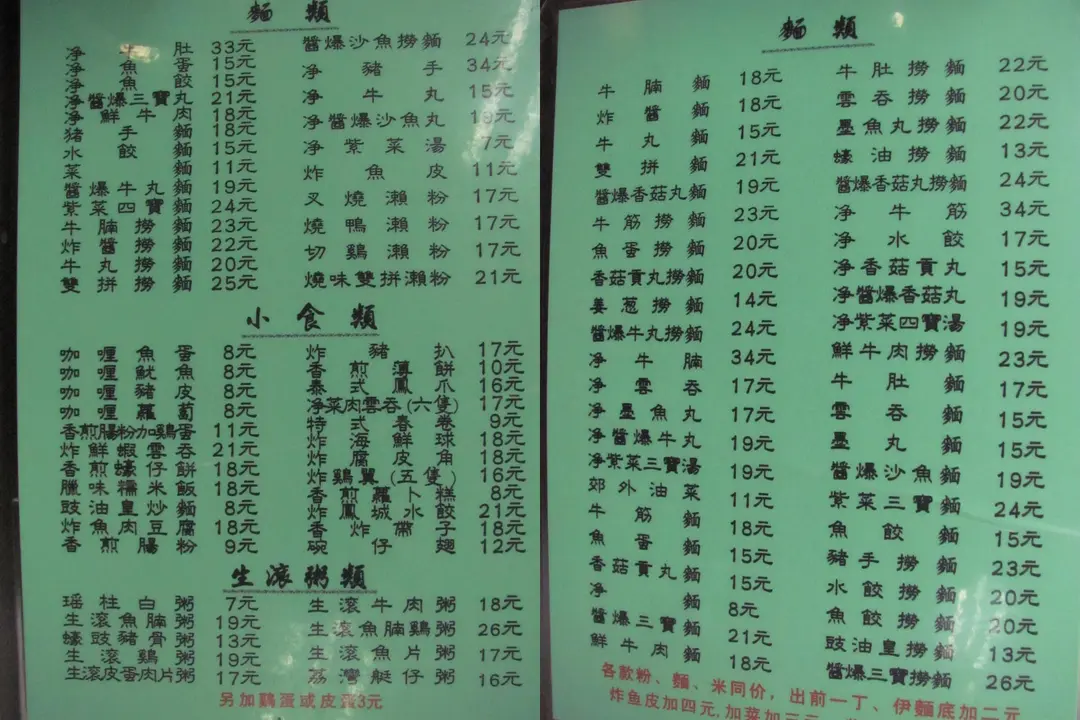 麵類
净牛肚 33元
净魚蛋 15元
净魚餃 15元
净醬爆三寶丸 21元
净鮮牛肉 18元
猪手麵 18元
水餃麵 15元
菜麵 11元
醬爆牛丸麵 19元
紫菜四寶麵 24元
牛腩撈麵 23元
炸醬撈麵 22元
牛丸撈麵 20元
雙拼撈麵 25元
醬爆沙魚撈麵 24元
净豬手 34元
净牛丸 15元
净醬爆沙魚丸 19元
净紫菜湯 7元
炸魚皮 11元
叉燒瀨粉 17元
燒鴨瀨粉 17元
切鷄瀨粉 17元
燒味雙拼瀨粉 21元
小食類
咖喱魚蛋 8元
咖喱魷魚 8元
咖喱豬皮 8元
咖喱蘿蔔 8元
香煎腸粉加鷄蛋 11元
炸鮮蝦雲吞 21元
香煎蠔仔餅 18元
臘味糯米飯 18元
豉油皇炒麵 8元
炸魚肉豆腐 18元
香煎腸粉 9元
炸豬扒 17元
香煎薄餅 10元
泰式鳳爪 16元
净菜肉雲吞(六隻) 17元
特式春卷 9元
炸海鮮球 18元
炸腐皮角 18元
炸鷄翼(五隻) 16元
香煎蘿卜糕 8元
炸鳳城水餃 21元
香炸帶子 18元
碗仔翅 12元
生滚粥類
瑶柱白粥 7元
生滚魚腩粥 19元
蠔豉豬骨粥 13元
生滚鷄粥 19元
生滚皮蛋肉片粥 17元
生滚牛肉粥 18元
生滚魚腩鷄粥 26元
生滚魚片粥 17元
荔灣艇仔粥 16元
另加鷄蛋或皮蛋3元
麵類
牛腩麵 18元
炸醬麵 18元
牛丸麵 15元
雙拼麵 21元
醬爆香菇丸麵 19元
牛筋撈麵 23元
魚蛋撈麵 20元
香菇貢丸撈麵 20元
姜葱撈麵 14元
醬爆牛丸撈麵 24元
净牛腩 34元
净雲吞 17元
净墨魚丸 17元
净醬爆牛丸 19元
净紫菜三寶湯 19元
郊外油菜 11元
牛筋麵 18元
魚蛋麵 15元
香菇貢丸麵 15元
净麵 8元
醬爆三寶麵 21元
鮮牛肉麵 18元
牛肚撈麵 22元
雲吞撈麵 20元
墨魚丸撈麵 22元
蠔油撈麵 13元
醬爆香菇丸撈麵 24元
净牛筋 34元
净水餃 17元
净香菇貢丸 15元
净醬爆香菇丸 19元
净紫菜四寶湯 19元
鮮牛肉撈麵 23元
牛肚麵 17元
雲吞麵 15元
墨丸麵 15元
醬爆沙魚麵 19元
紫菜三寶麵 24元
魚餃麵 15元
豬手撈麵 23元
水餃撈麵 20元
魚餃撈麵 20元
豉油皇撈麵 13元
醬爆三寶撈麵 26元
各款粉、麵、米同价，出前一丁、伊麵底加二元
炸鱼皮加四元,加菜加三元